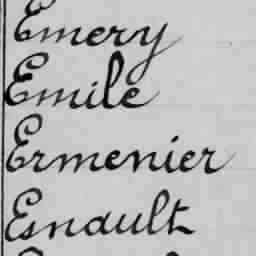 Emery
Emile
Ermenier
Esnault